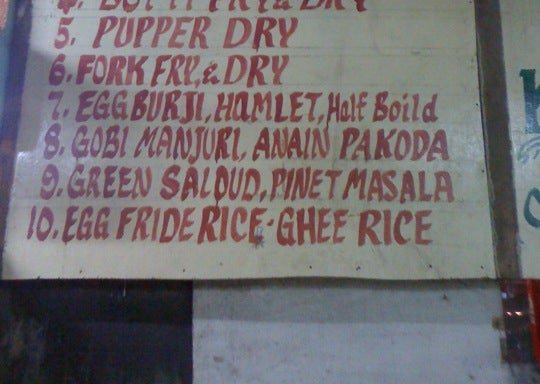 4. BOTTI FRY & DRY
5. PUPPER DRY
6. FORK FRY, & DRY
7. EGG BURJI, HAMLET, Half Boild
8. GOBI MANJURI, ANAIN PAKODA
9. GREEN SALOUD, PINET MASALA
10. EGG FRIDE RICE - GHEE RICE